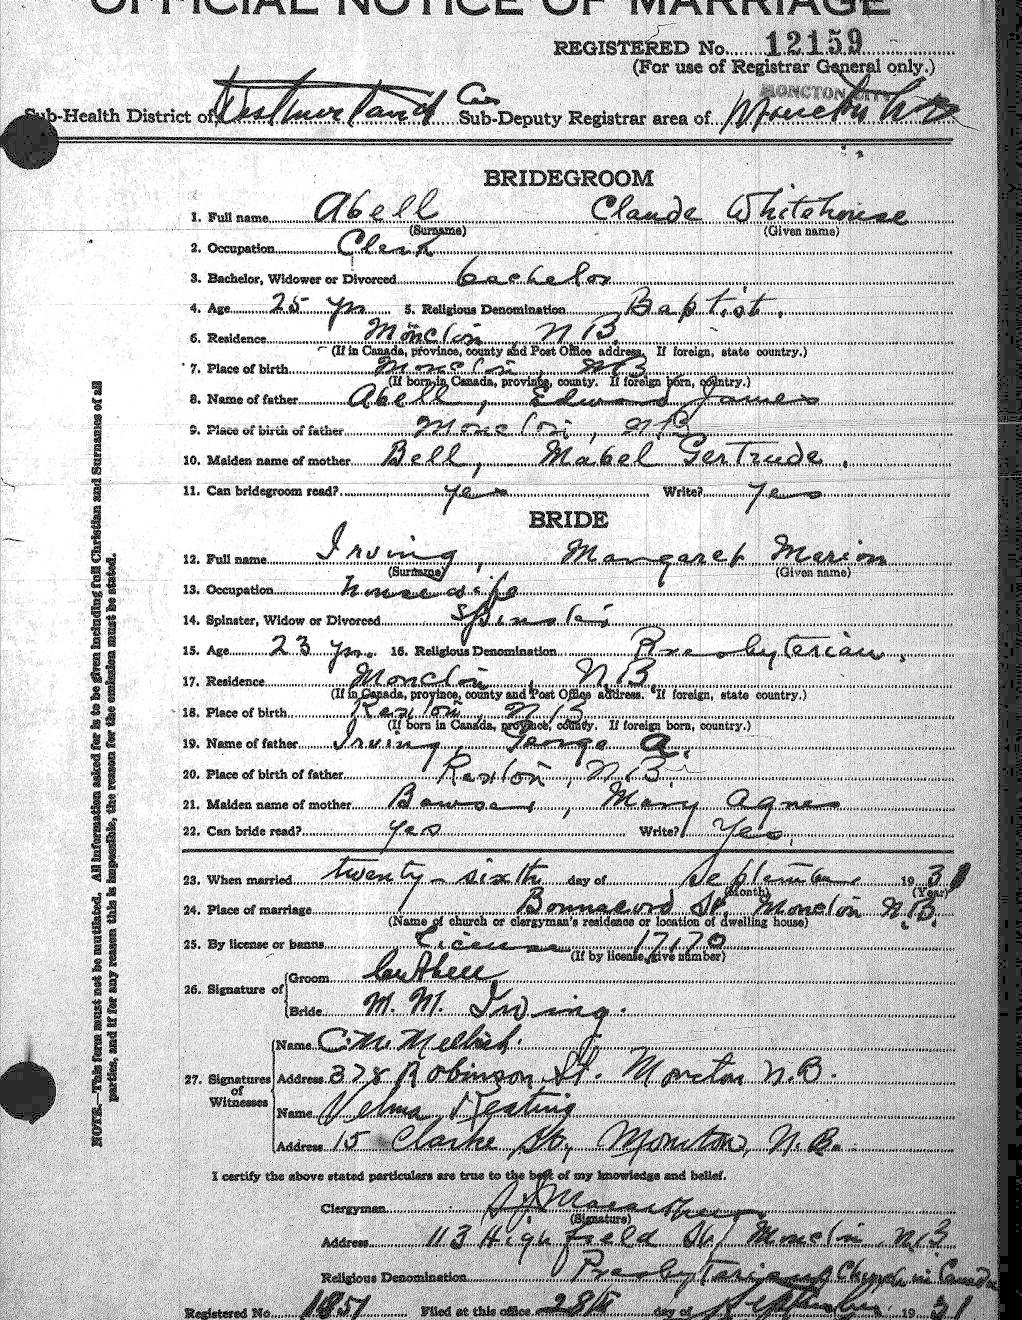 OFFICIAL NOTICE OF MARRIAGE
REGISTERED No. 12159
(For use of Registrar General only.)
MONCTON CITY
Sub-Health District of Westmorland Co Sub-Deputy Registrar area of Moncton N B
BRIDEGROOM
1. Full name Abell Claude Whitehouse
(Surname) (Given name)
2. Occupation Clerk
3. Bachelor, Widower or Divorced bachelor
4. Age 25 yrs 5. Religious Denomination Baptist.
6. Residence Moncton N B.
(If in Canada, province, county and Post Office address. If foreign, state country.)
7. Place of birth Moncton, N B
(If born in Canada, province, county. If foreign born, country.)
8. Name of father Abell, Edward James
9. Place of birth of father Moncton, N B
10. Maiden name of mother Bell, Mabel Gertrude.
11. Can bridegroom read? yes Write? yes
BRIDE
12. Full name Irving, Margaret Marion
(Surname) (Given name)
13. Occupation housewife
14. Spinster, Widow or Divorced Spinster
15. Age 23 yrs. 16. Religious Denomination Presbyterian.
17. Residence Moncton, N B.
(If in Canada, province, county and Post Office address. If foreign, state country.)
18. Place of birth Rexton, N B
(If born in Canada, province, county. If foreign born, country.)
19. Name of father Irving, George A.
20. Place of birth of father Rexton, N B
21. Maiden name of mother Bowser, Mary Agnes
22. Can bride read? yes Write? Yes.
23. When married twenty-sixth day of September 1931
(Month) (Year)
24. Place of marriage Bonnacord St. Moncton N.B.
(Name of church or clergyman's residence or location of dwelling house)
25. By license or banns License 17170
(If by license, give number)
26. Signature of
Groom Abell
Bride M. M. Irving.
27. Signatures of Witnesses
Name C. M. Mellish.
Address 378 Robinson St. Moncton N.B.
Name Velma Keating
Address 15 Clarke St., Moncton, N.B.
I certify the above stated particulars are true to the best of my knowledge and belief.
Clergyman
(Signature)
Address 113 Highfield St, Moncton, N B
Religious Denomination Presbyterian Church in Canada
Registered No. 1851 Filed at this office 28th day of September 1931
NOTE.—This form must not be mutilated. All information asked for is to be given including full Christian and Surnames of all
parties, and if for any reason this is impossible, the reason for the omission must be stated.